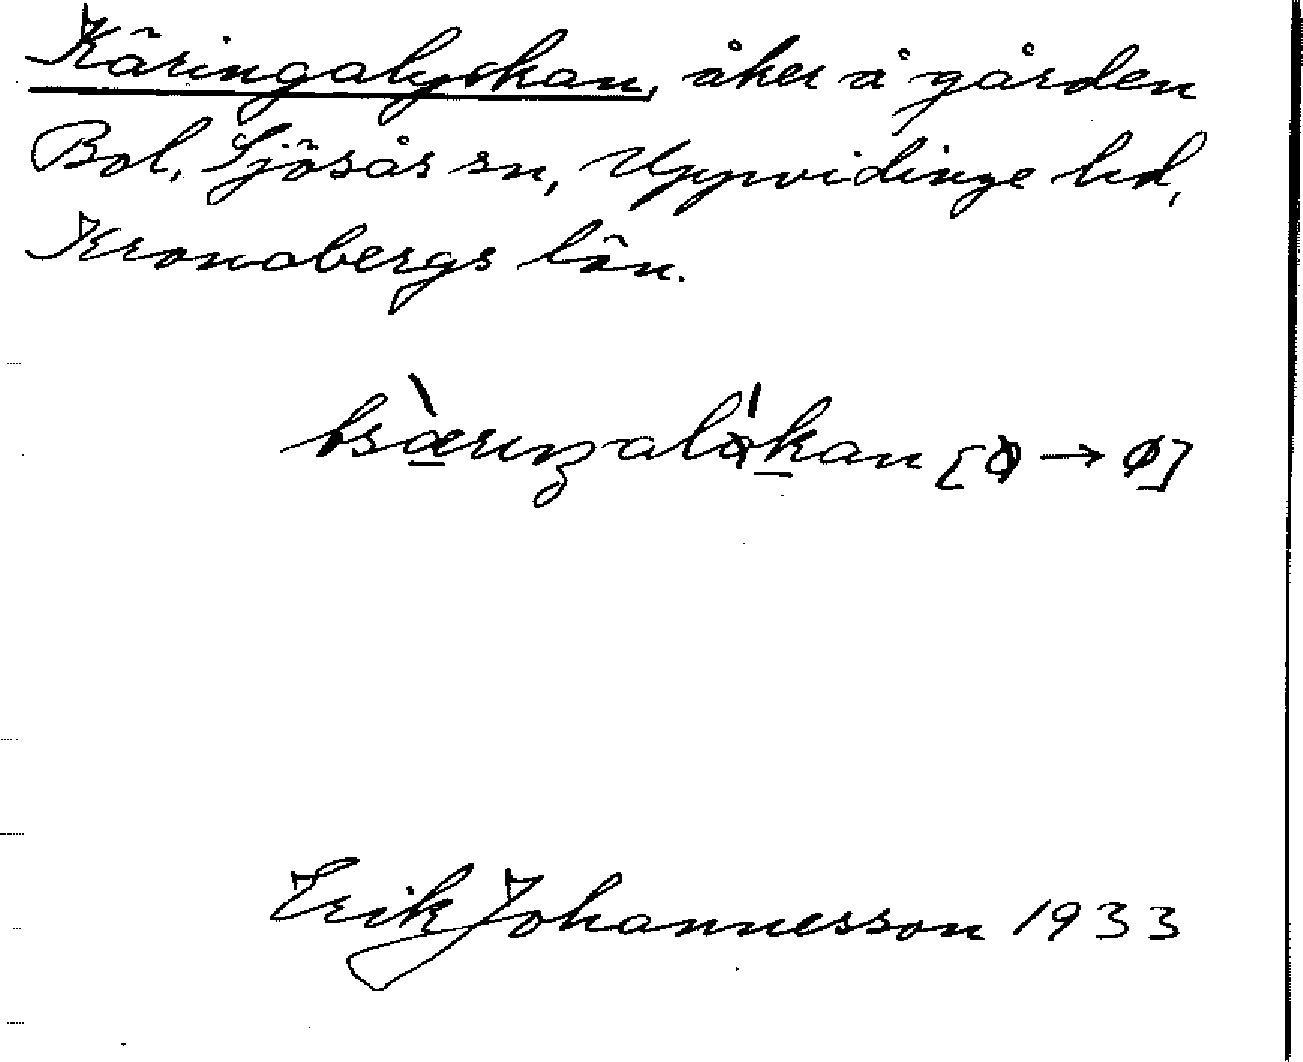 Käringalyckan, åker å gården
Bol, Sjösås sn, Uppvidinge hd,
Kronobergs län.
Erik Johannesson 1933